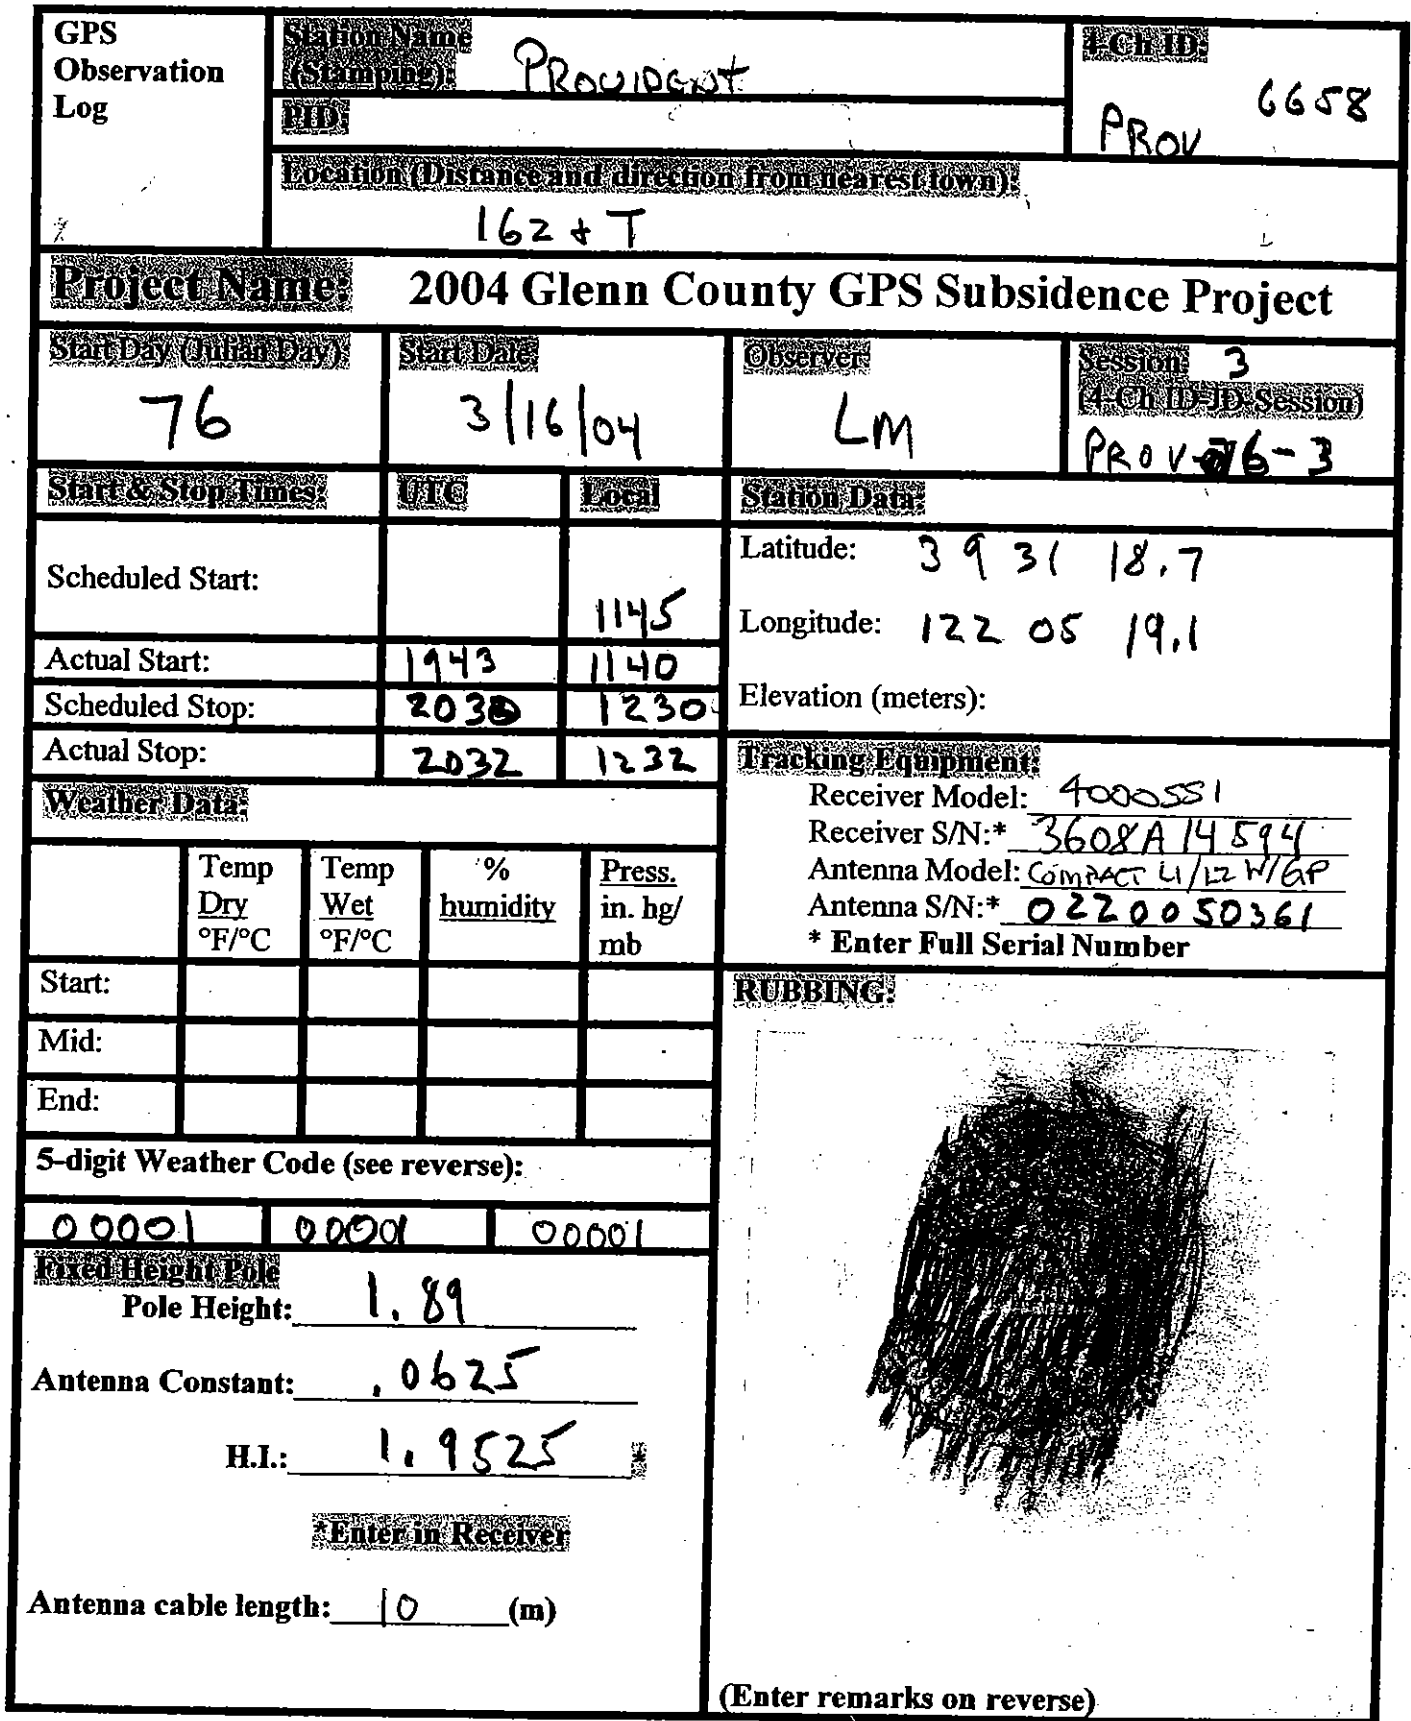 GPS
Observation
Log
Station Name
(Stamping): PROVIDENT
PID:
4-Ch ID:
6658
PROV
Location (Distance and direction from nearest town):
162 + T
Project Name: 2004 Glenn County GPS Subsidence Project
Start Day (Julian Day)
76
Start Date:
3/16/04
Observer:
LM
Session: 3
(4-Ch ID-JD-Session)
PROV-76-3
Start & Stop Times: UTC Local
Scheduled Start: 1145
Actual Start: 1943 1140
Scheduled Stop: 2030 1230
Actual Stop: 2032 1232
Station Data:
Latitude: 39 31 18.7
Longitude: 122 05 19.1
Elevation (meters):
Tracking Equipment:
Receiver Model: 4000SSI
Receiver S/N:* 3608A14594
Antenna Model: COMPACT L1/L2 W/GP
Antenna S/N:* 0220050361
* Enter Full Serial Number
Weather Data:
Temp Dry °F/°C
Temp Wet °F/°C
% humidity
Press. in. hg/ mb
Start:
Mid:
End:
5-digit Weather Code (see reverse):
00001 00001 00001
Fixed Height Pole
Pole Height: 1.89
Antenna Constant: .0625
H.I.: 1.9525 *
*Enter in Receiver
Antenna cable length: 10 (m)
RUBBING:
(Enter remarks on reverse)